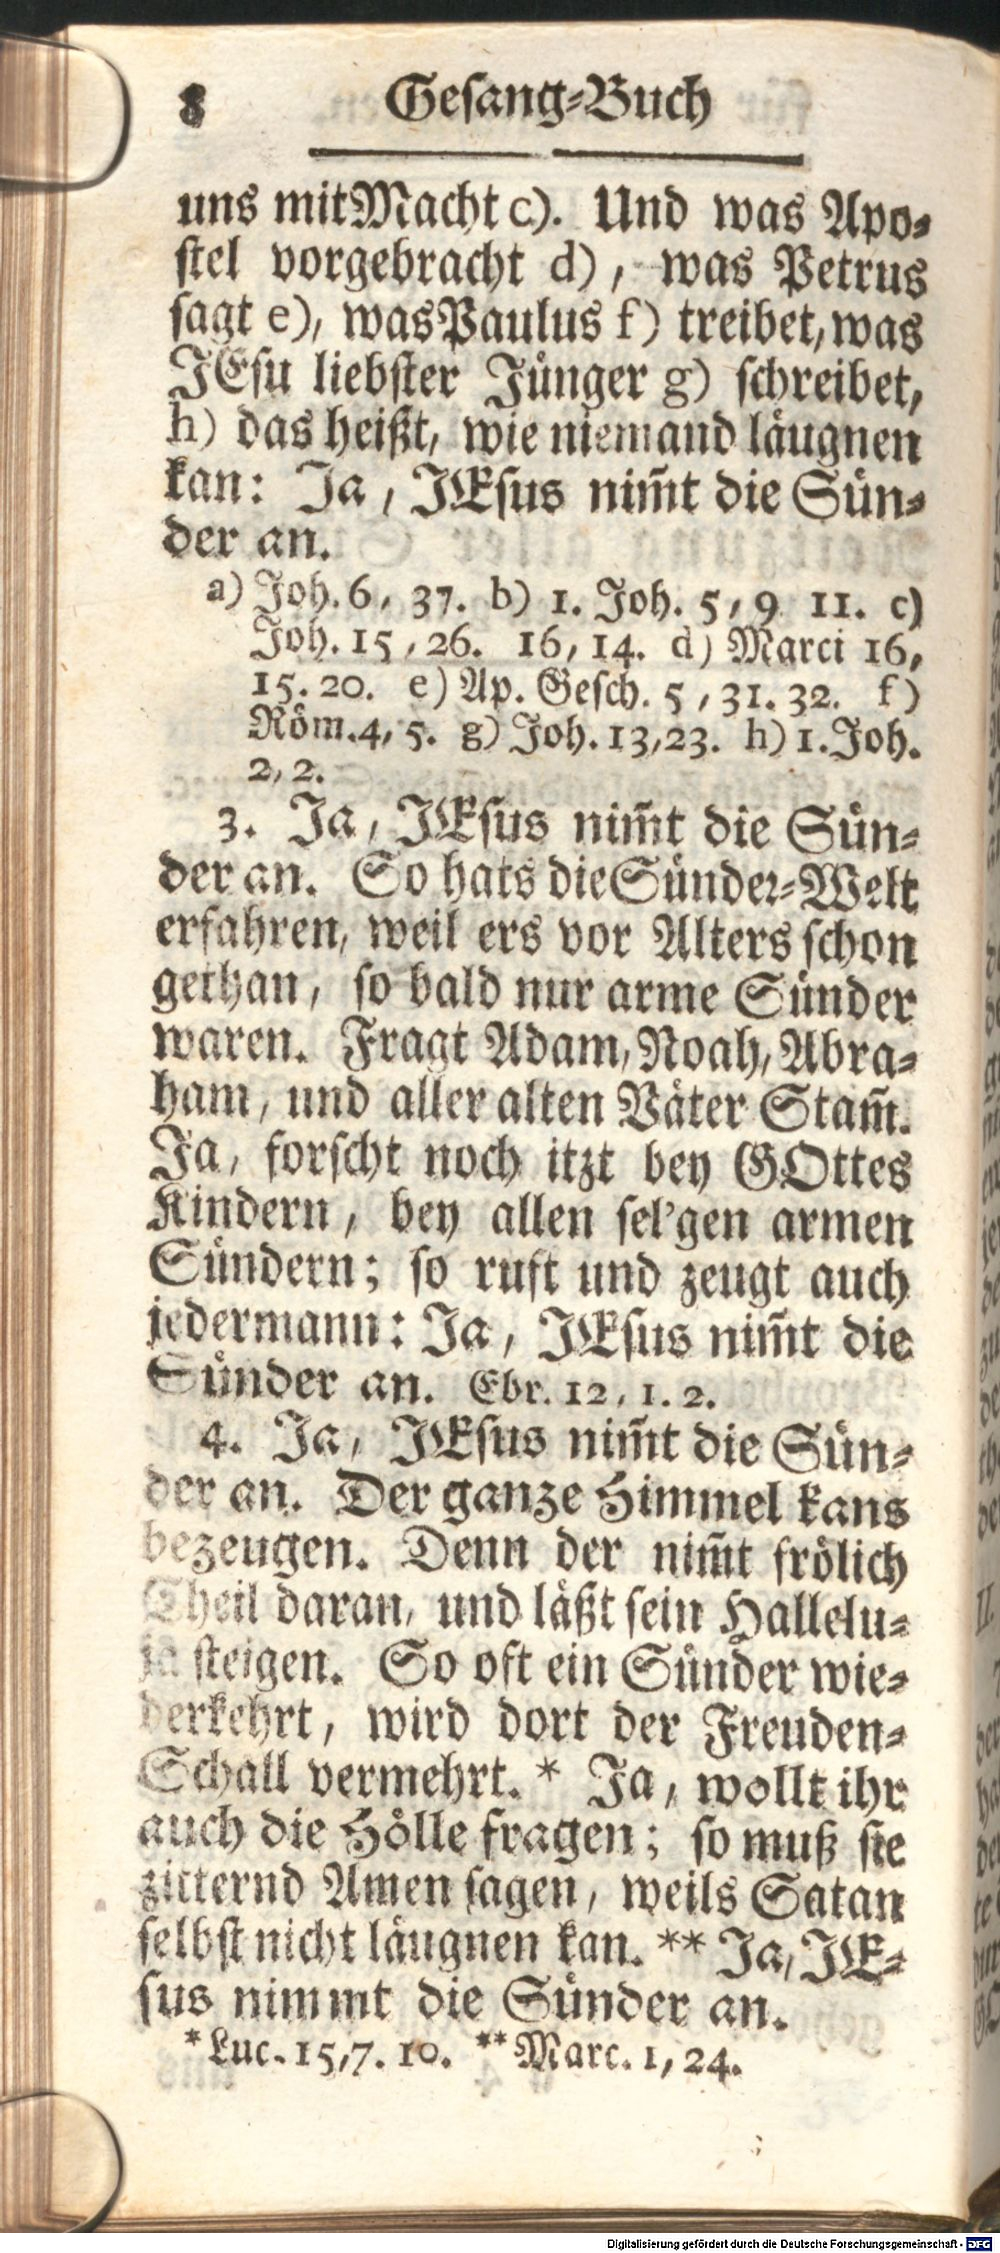 8 Geſang-Buch
uns mit Macht c). Und was Apo-
ſtel vorgebracht d), was Petrus
ſagt e), was Paulus f) treibet, was
JEſu liebſter Jünger g) ſchreibet,
h) das heißt, wie niemand läugnen
kan: Ja, JEſus nim̃t die Sün-
der an.
a) Joh. 6, 37. b) 1. Joh. 5, 9 11. c)
Joh. 15, 26. 16, 14. d) Marci 16,
15. 20. e) Ap. Geſch. 5, 31. 32. f)
Röm. 4, 5. g) Joh. 13, 23. h) 1. Joh.
2, 2.
3. Ja, JEſus nim̃t die Sün-
der an. So hats die Sünder-Welt
erfahren, weil ers vor Alters ſchon
gethan, ſo bald nur arme Sünder
waren. Fragt Adam, Noah, Abra-
ham, und aller alten Väter Stam̃.
Ja, forſcht noch itzt bey GOttes
Kindern, bey allen ſel'gen armen
Sündern; ſo ruft und zeugt auch
jedermann: Ja, JEſus nim̃t die
Sünder an. Ebr. 12, 1. 2.
4. Ja, JEſus nim̃t die Sün-
der an. Der ganze Himmel kans
bezeugen. Denn der nim̃t frölich
Theil daran, und läßt ſein Hallelu-
ja ſteigen. So oft ein Sünder wie-
derkehrt, wird dort der Freuden-
Schall vermehrt. * Ja, wollt ihr
auch die Hölle fragen; ſo muß ſie
zitternd Amen ſagen, weils Satan
ſelbſt nicht läugnen kan. ** Ja, JE-
ſus nimmt die Sünder an.
* Luc. 15, 7. 10. ** Marc. 1, 24.
Digitalisierung gefördert durch die Deutsche Forschungsgemeinschaft - DFG